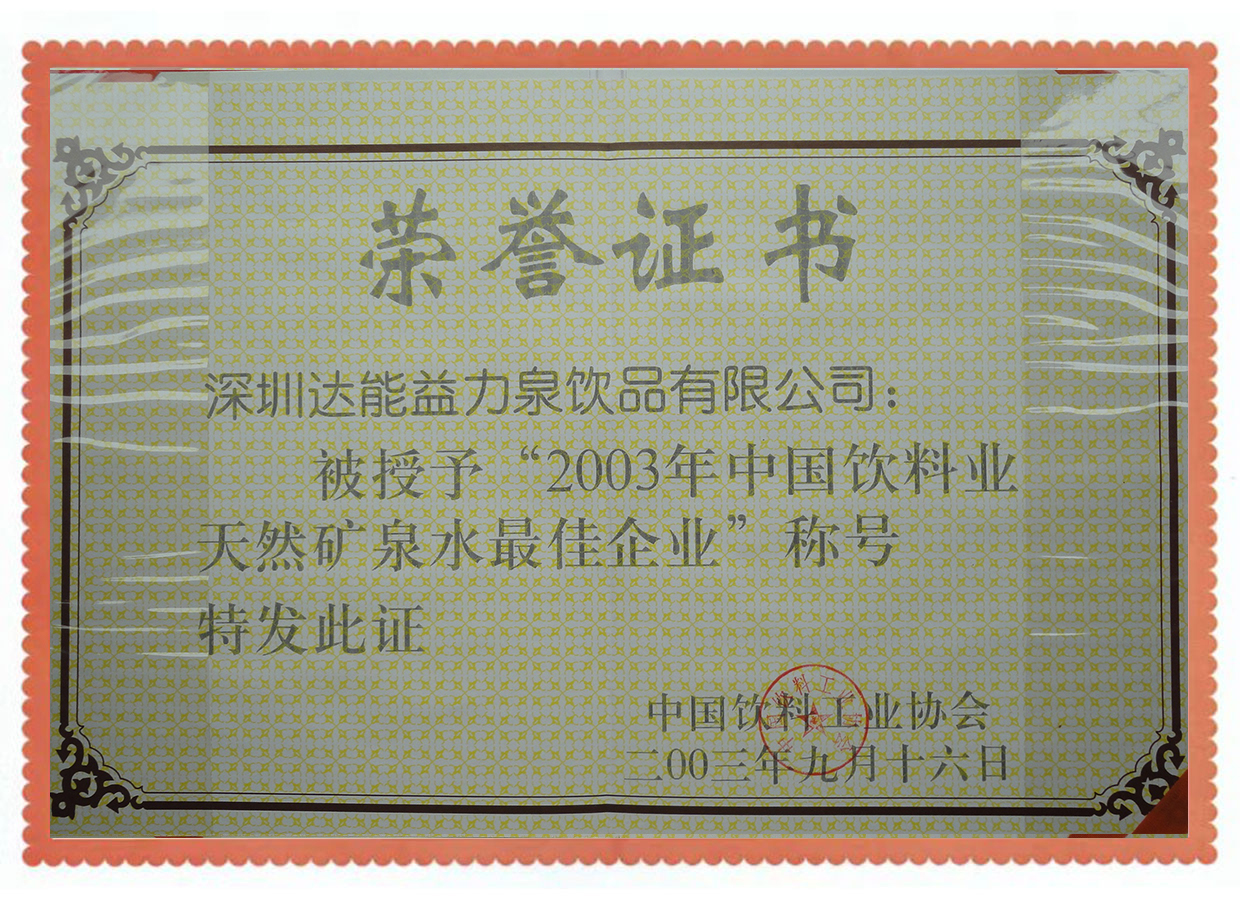 荣誉证书
深圳达能益力泉饮品有限公司：
被授予“2003年中国饮料业
天然矿泉水最佳企业”称号
特发此证
中国饮料工业协会
二00三年九月十六日